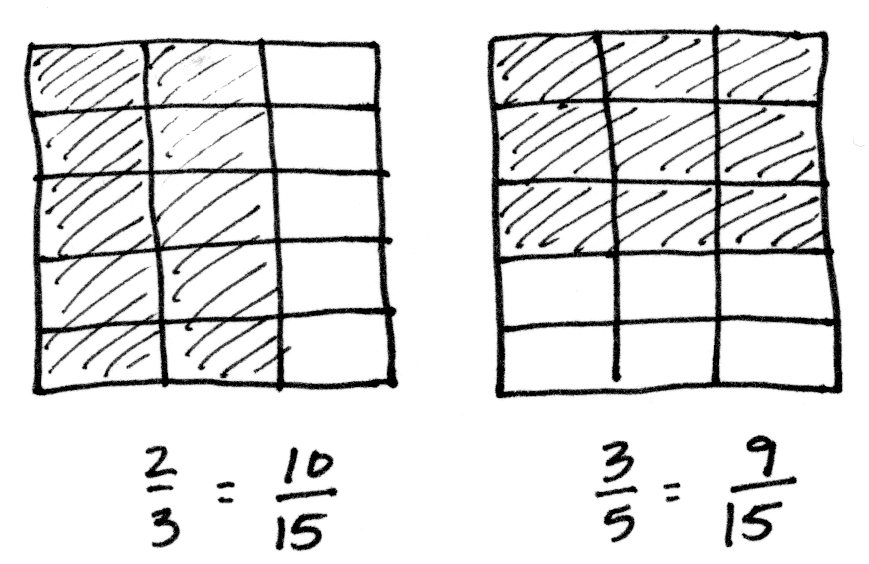 2/3 = 10/15
3/5 = 9/15